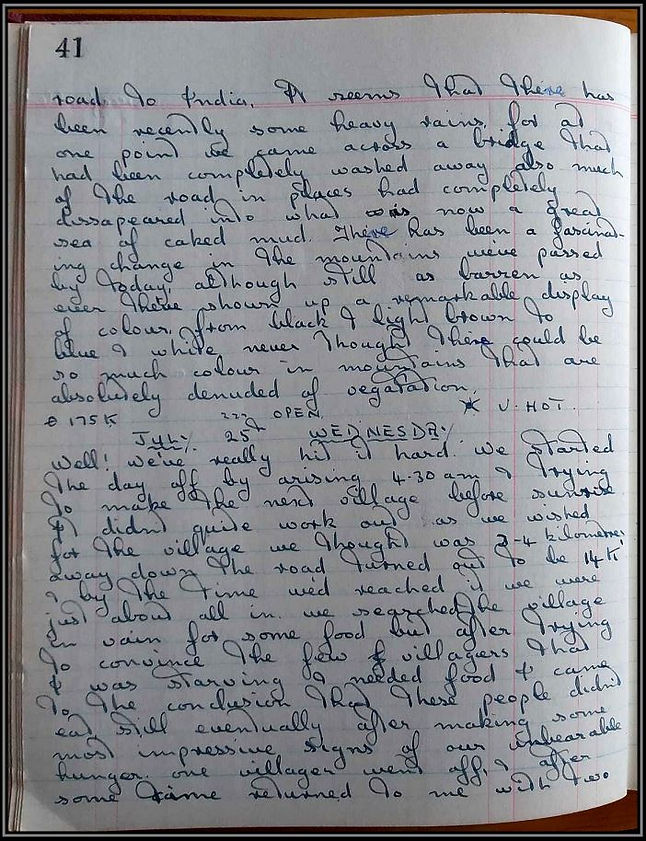 41
road to India. It seems that there has
been recently some heavy rains, for at
one point we came across a bridge that
had been completely washed away also much
of the road in places had completely
dissapeared into what is now a great
sea of caked mud. There has been a fascinat-
ing change in the mountains we've passed
by today, although still as barren as
ever there shown up a remarkable display
of colour, from black & light brown to
blue & white, never thought there could be
so much colour in mountains that are
absolutely denuded of vegatation.
175 K OPEN. V. HOT.
JULY. 25th WEDNESDAY
Well! We've really hit it hard. We started
the day off by arising 4.30 am & trying
to make the next village before sunrise
It didnt quite work out as we wished
for the village we thought was 3-4 kilometres
away down the road turned out to be 14 K
& by the time we'd reached it we were
just about all in. We searched the village
in vain for some food but after trying
to convince the few villagers that
I was starving & needed food I came
to the conclusion that these people didnt
eat, still eventually after making some
most impressive signs of our unbearable
hunger. one villager went off, & after
some time returned to me with two